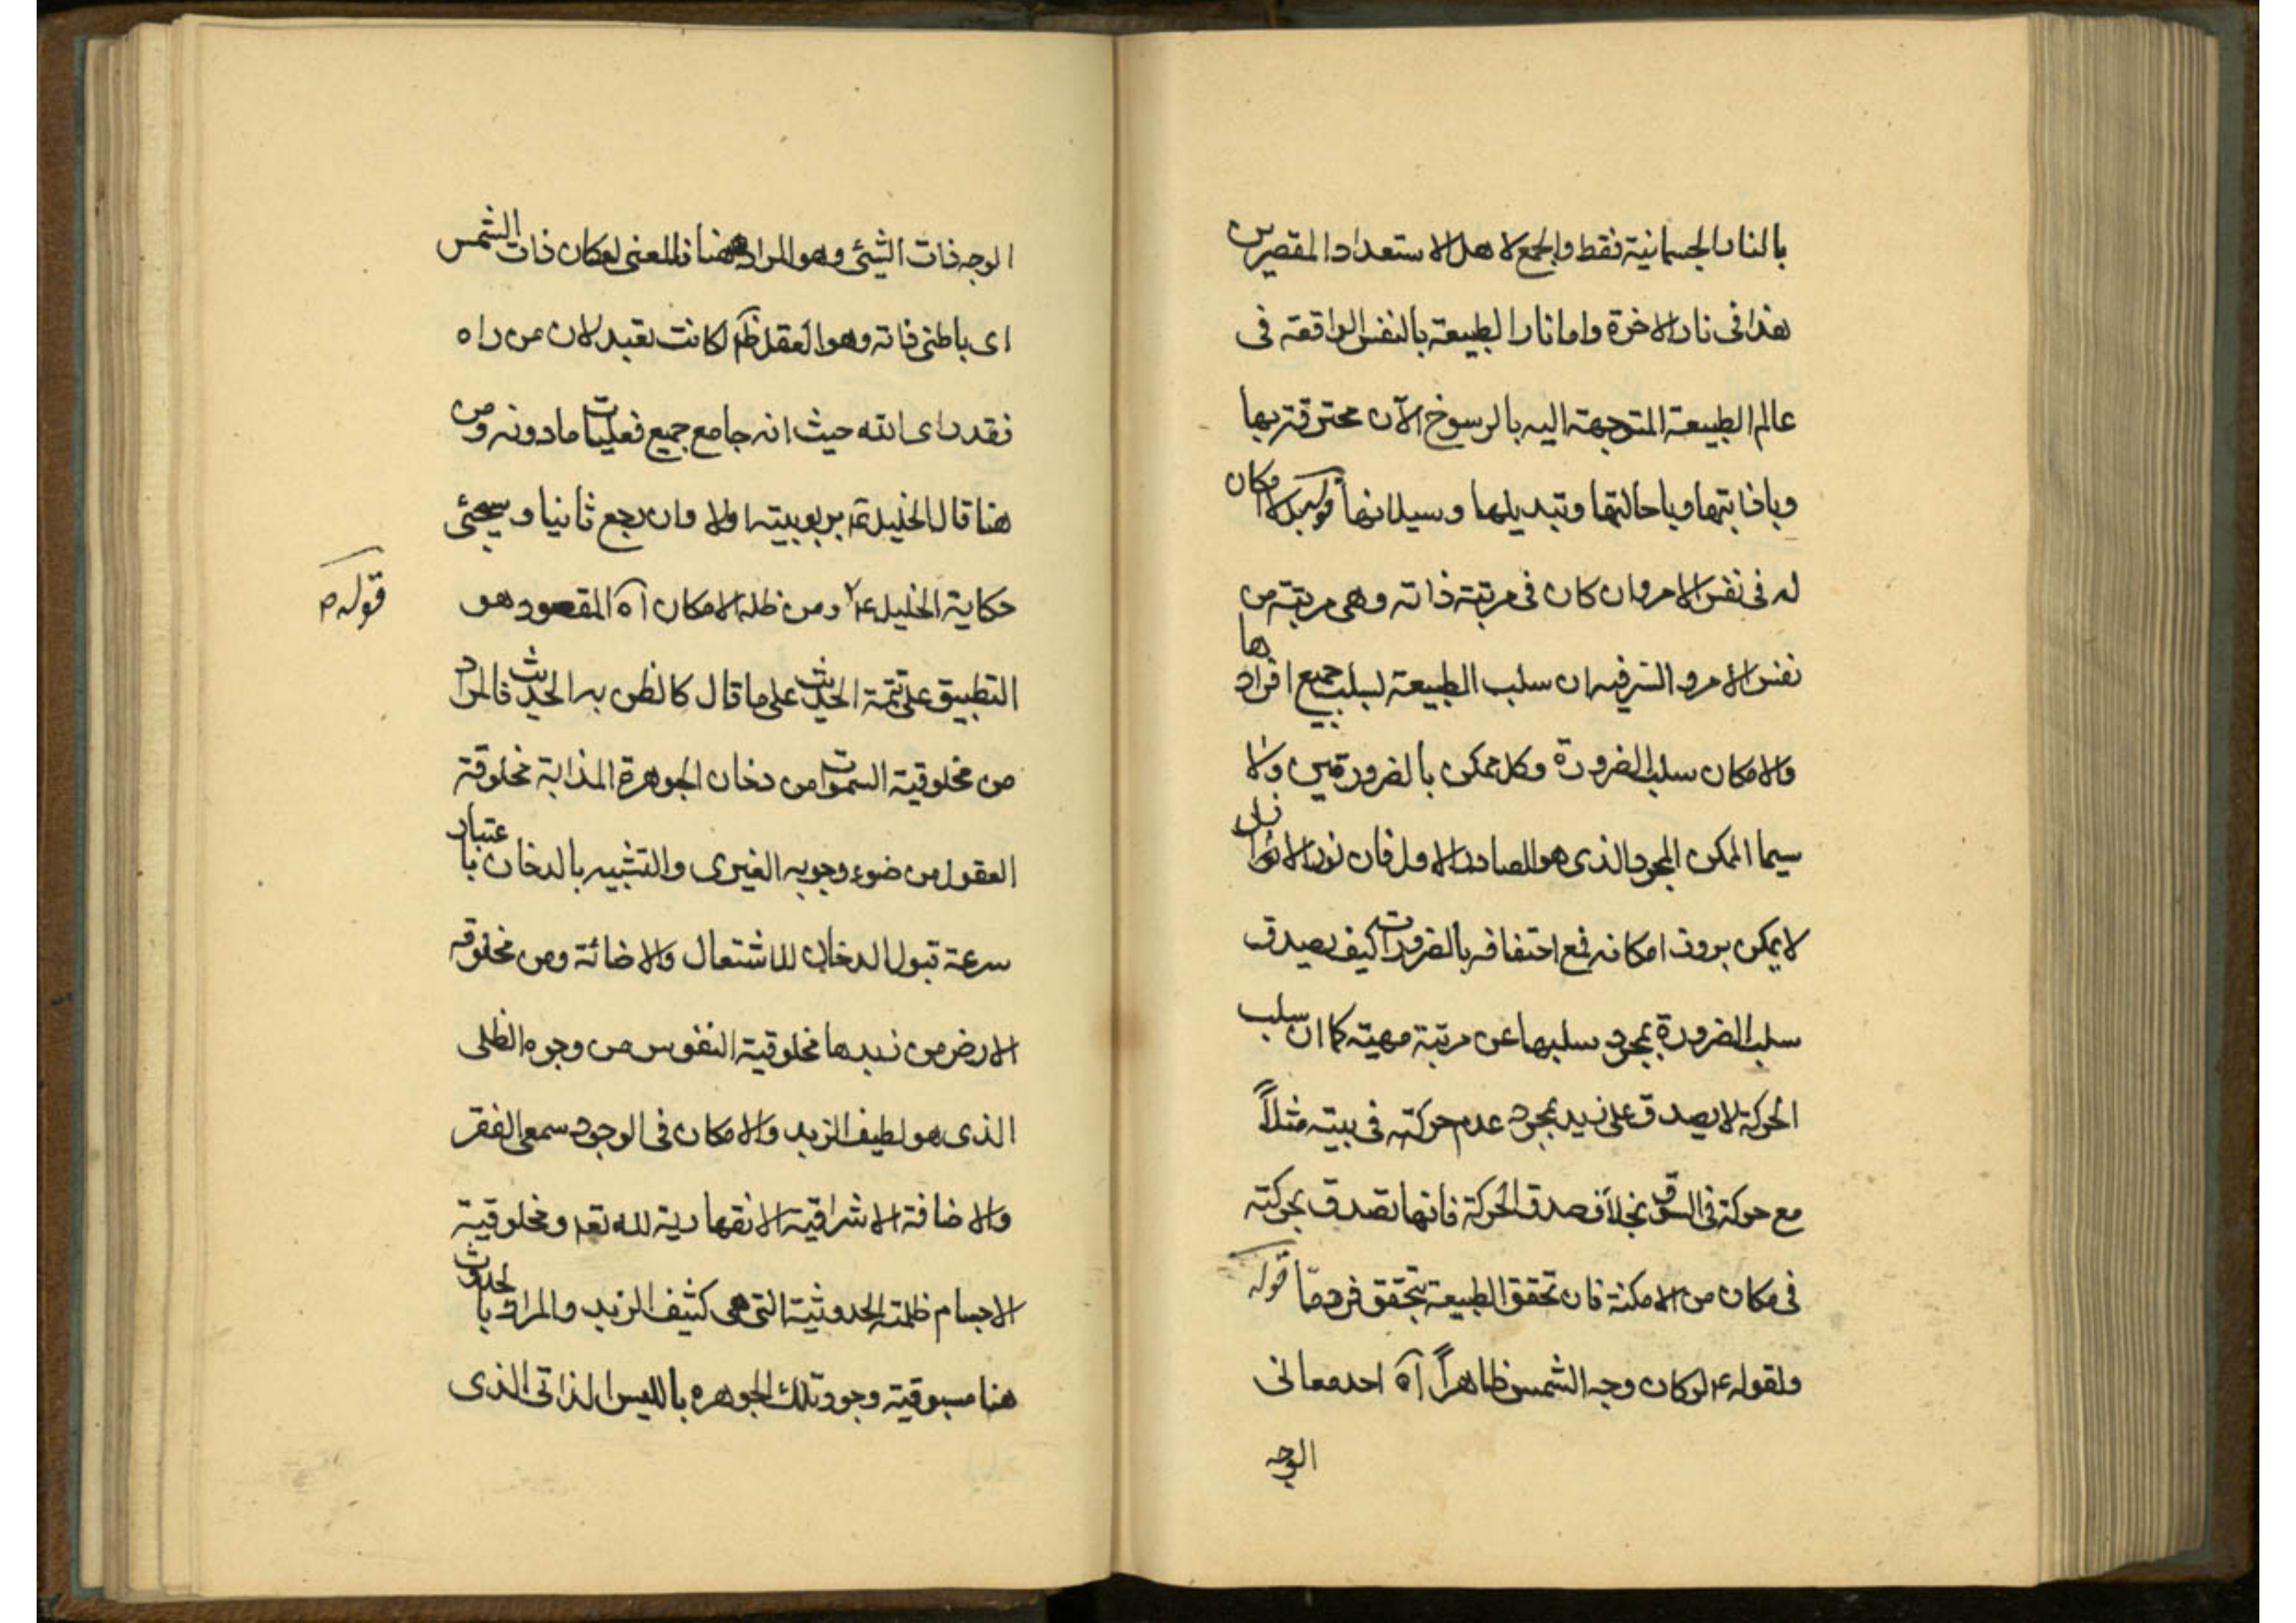 بالنار الجسمانية فقط والجمع لاهل الاستعداد المقصرين
هذا فى نار الاخرة واما نار الطبيعة بالنفس الواقعة فى
عالم الطبيعة المتوجهة اليه بالرسوخ الآن محترقة بها
وباذابتها وباحالتها وتبديلها وسيلانها قوله بل لا امكان
له فى نفس الامر وان كان فى مرتبة ذاته وهى مرتبة من
نفس الامر والسر فيه ان سلب الطبيعة بسلب جميع افرادها
والامكان سلب الضرورة وكل ممكن بالضرورتين ولا
سيما الممكن المجرد الذى هو الصادر الاول فان نور الانوار
لا يمكن بروز امكانه فمع احتفافه بالضرورات كيف يصدق
سلب الضرورة بمجرد سلبها عن مرتبة مهيته كما ان سلب
الحركة لا يصدق على زيد بمجرد عدم حركته فى بيته مثلاً
مع حركته فى السوق بخلاف صدق الحركة فانها تصدق بحركته
فى مكان من الامكنة فان تحقق الطبيعة بتحقق فرد مّا قوله
ولقوله ع لو كان وجه الشمس ظاهراً آه احد معانى
الوجه
الوجه ذات الشيئ وهو المراد ههنا فالمعنى لو كان ذات الشمس
اى باطنى ذاته وهو العقل لكانت تعبد لان من راه
فقد راى الله حيث انه جامع جميع فعليات ما دونه ومن
هنا قال الخليل بربوبيته اولا وان رجع ثانيا وسيجئى
حكاية الخليل ع ومن ظله الامكان آه المقصود هو
قوله
التطبيق على تتمة الحديث على ما قال كالظن به الحديث فالمراد
من مخلوقية السموات من دخان الجوهرة المذابة مخلوقة
العقول من ضوء وجوبه الغيرى والتشبيه بالدخان باعتبار
سرعة قبول الدخان للاشتعال والاضائة ومن مخلوقه
الارض من زبدها مخلوقية النفوس من وجوه الظلى
الذى هو لطيف الزبد والامكان فى الوجود سمعى الفقر
والاضافة الاشراقية الانقهارية لله تعم ومخلوقية
الاجسام ظلمته الحدوثية التى هى كثيف الزبد والمراد بالحدوث
هنا مسبوقية وجود تلك الجوهره بالليس الذاتى الذى